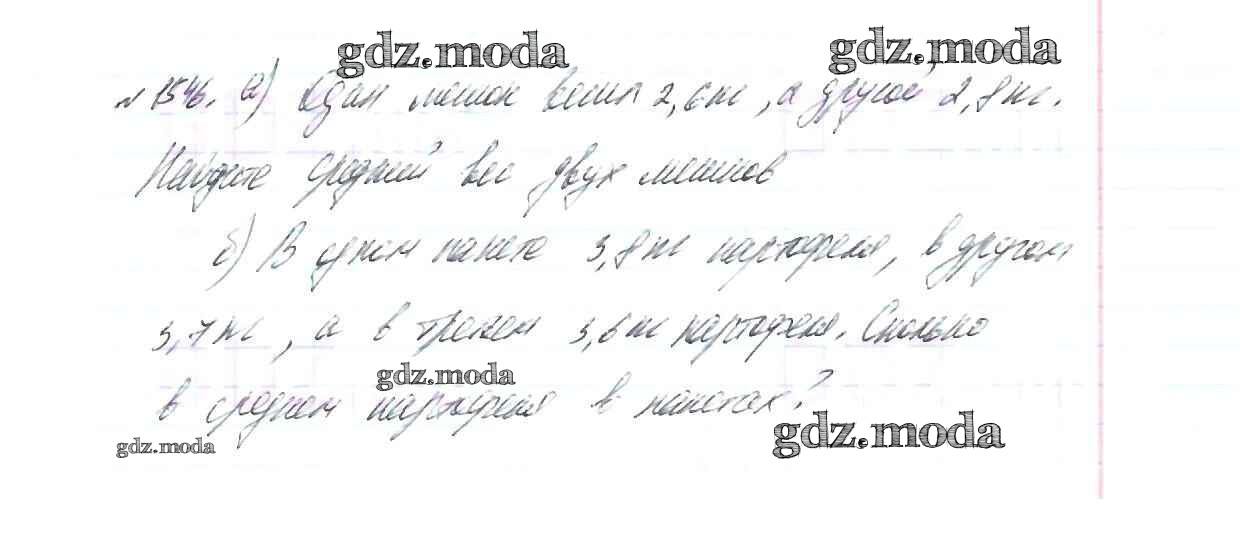 gdz.moda gdz.moda
№ 1546. а) Один мешок весит 2,6 кг, а другой 2,8 кг.
Найдите средний вес двух мешков
б) В одном пакете 3,8 кг картофеля, в другом
3,7 кг, а в третьем 3,6 кг картофеля. Сколько
gdz.moda
в среднем картофеля в пакетах?
gdz.moda gdz.moda